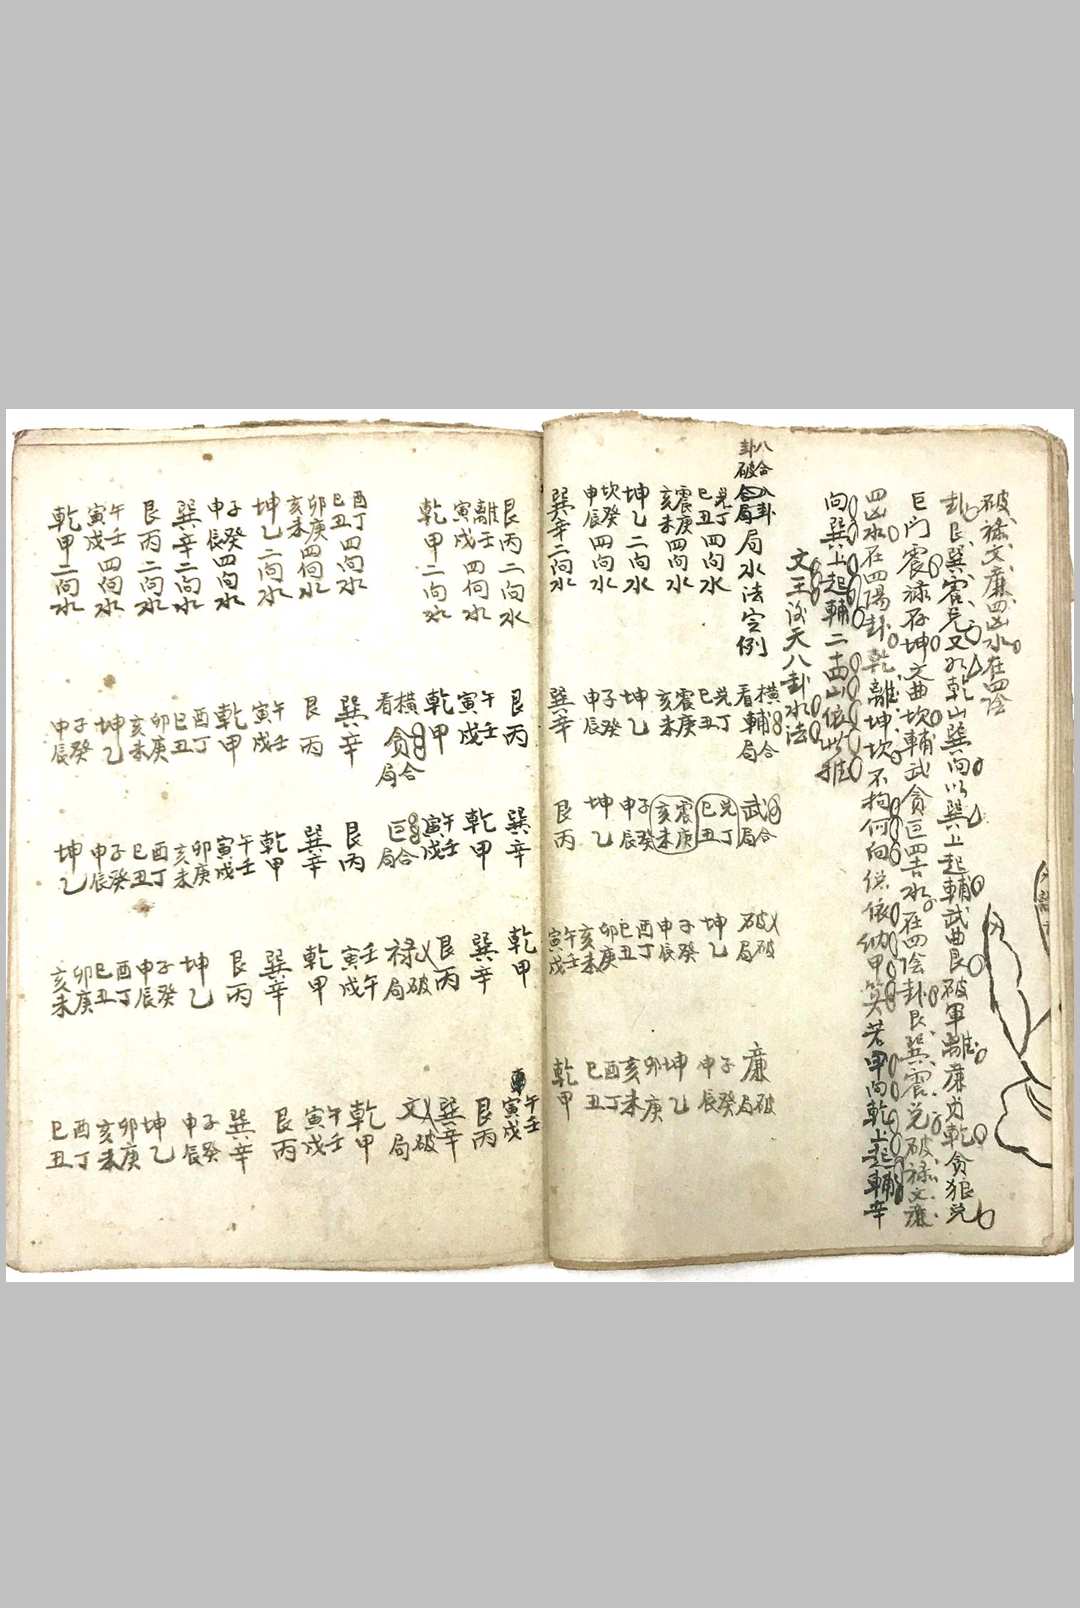 破祿文廉四凶水在四陰
卦艮巽震兌又如乾山巽向以巽上起輔武曲艮破軍離廉貞乾貪狼兌
巨门震祿存坤文曲坎輔武貪巨四吉水在四陰卦艮巽震兌破祿文廉
四凶水在四陽卦乾離坤坎不拘何向俱依納甲算若甲向乾上起輔辛
向巽上起輔二十四山依此推
文王後天八卦水法
八合八卦
卦破合局局水法定例
橫合
看輔局
武合
局
破破
局
廉破
局
兌丁巳丑四向水
兌丁巳丑
兌丁巳丑
坤乙
申子辰癸
震庚亥未四向水
震庚亥未
震庚亥未
申子辰癸
坤乙
坤乙二向水
坤乙
申子辰癸
酉丁巳丑
卯庚亥未
坎癸申辰四向水
申子辰癸
坤乙
卯庚亥未
酉丁巳丑
巽辛二向水
巽辛
艮丙
午壬寅戌
乾甲
艮丙二向水
艮丙
巽辛
乾甲
午壬寅戌
離壬寅戌四向水
午壬寅戌
乾甲
巽辛
艮丙
乾甲二向水
乾甲
午壬寅戌
艮丙
巽辛
橫合
看貪局
巨合
局
祿破
局
文破
局
酉丁巳丑四向水
巽辛
艮丙
壬午寅戌
乾甲
卯庚亥未四向水
艮丙
巽辛
乾甲
午壬寅戌
坤乙二向水
午壬寅戌
乾甲
巽辛
艮丙
子癸申辰四向水
乾甲
午壬寅戌
艮丙
巽辛
巽辛二向水
酉丁巳丑
卯庚亥未
坤乙
子癸申辰
艮丙二向水
卯庚亥未
酉丁巳丑
子癸申辰
坤乙
午壬寅戌四向水
坤乙
子癸申辰
酉丁巳丑
卯庚亥未
乾甲二向水
子癸申辰
坤乙
卯庚亥未
酉丁巳丑